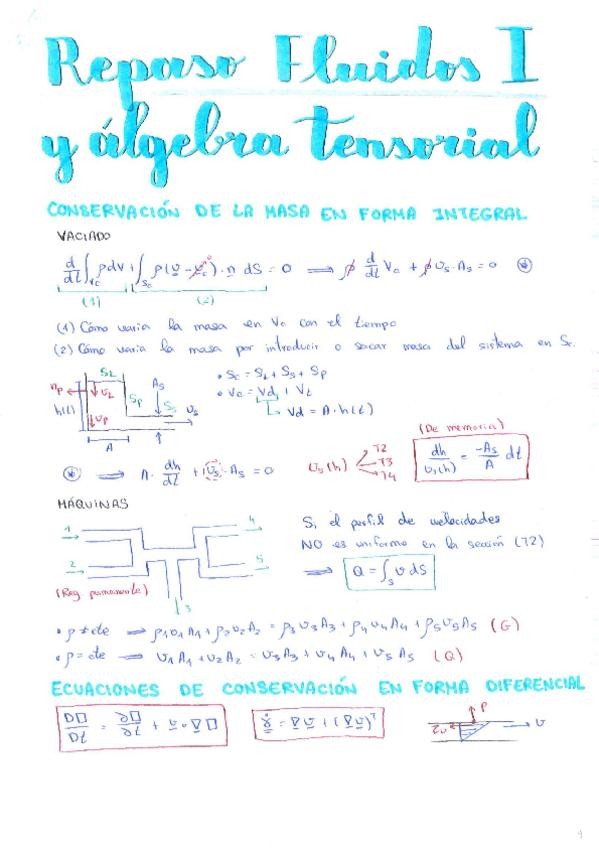 Repaso Fluidos I
y álgebra tensorial
CONSERVACIÓN DE LA MASA EN FORMA INTEGRAL
VACIADO
d/dt ∫Vc ρdV + ∫Sc ρ(v - vc)·n dS = 0 ⟹ ρ d/dt Vc + ρ vs·As = 0 ⊛
(1) (2)
(1) Cómo varia la masa en Vc con el tiempo
(2) Cómo varia la masa por introducir o sacar masa del sistema en Sc.
SL As • Sc = SL + Ss + Sp
np vL Sp Ss vs • Vc = Vd + Vt
h(t) vp Vd = A·h(t)
A
(De memoria)
⊛ ⟹ A· dh/dt + vs·As = 0 vs(h) T2 T3 T4 dh/vs(h) = -As/A dt
MÁQUINAS
1 2 3 4 5
Si el perfil de velocidades
NO es uniforme en la sección (T2)
⟹ Q = ∫s v dS
(Reg permanente)
• ρ≠cte ⟹ ρ1v1A1 + ρ2v2A2 = ρ3v3A3 + ρ4v4A4 + ρ5v5A5 (G)
• ρ=cte ⟹ v1A1 + v2A2 = v3A3 + v4A4 + v5A5 (Q)
ECUACIONES DE CONSERVACIÓN EN FORMA DIFERENCIAL
D□/Dt = ∂□/∂t + v·∇□ γ̇ = ∇v + (∇v)ᵀ P v
1